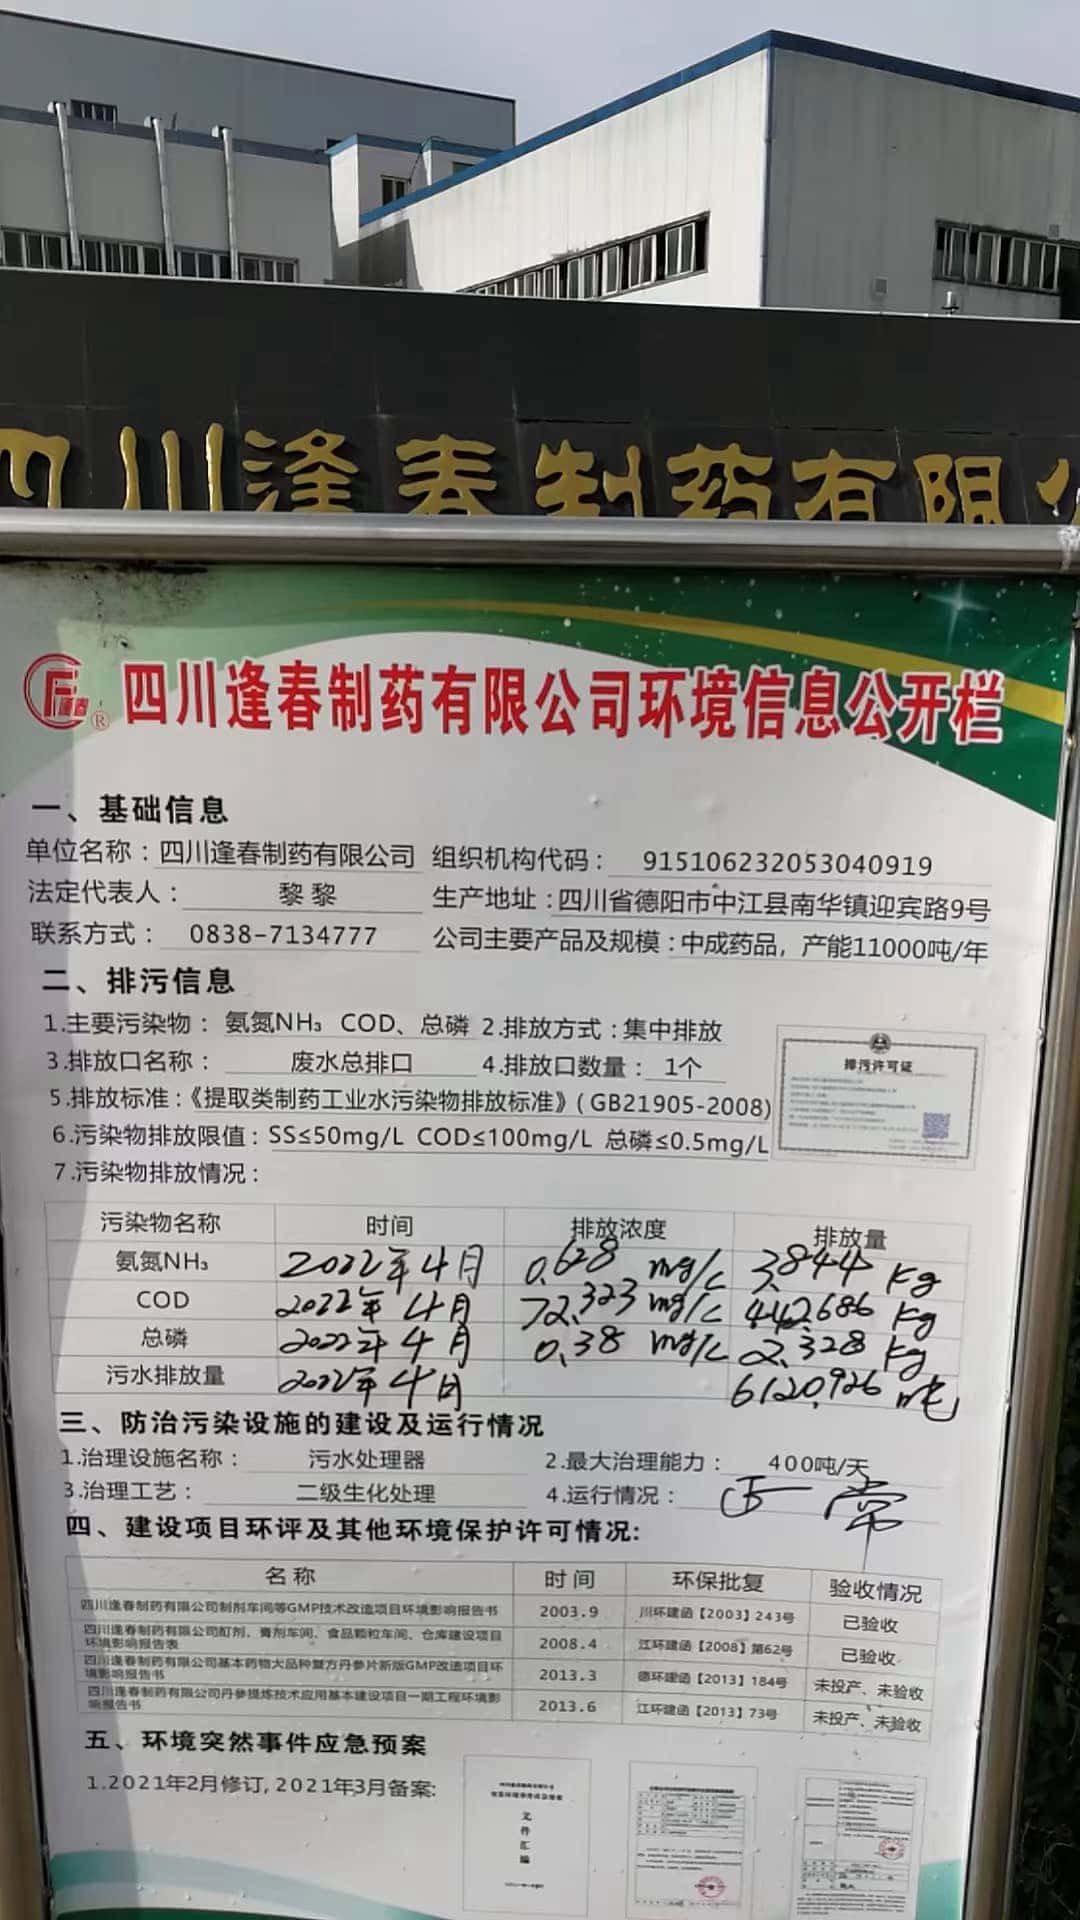 四川逢春制药有限公
逢春®
四川逢春制药有限公司环境信息公开栏
一、基础信息
单位名称：四川逢春制药有限公司 组织机构代码：915106232053040919
法定代表人：黎黎 生产地址：四川省德阳市中江县南华镇迎宾路9号
联系方式：0838-7134777 公司主要产品及规模：中成药品，产能11000吨/年
二、排污信息
1.主要污染物：氨氮NH₃ COD、总磷 2.排放方式：集中排放
3.排放口名称：废水总排口 4.排放口数量：1个
5.排放标准：《提取类制药工业水污染物排放标准》(GB21905-2008)
6.污染物排放限值：SS≤50mg/L COD≤100mg/L 总磷≤0.5mg/L
7.污染物排放情况：
排污许可证
污染物名称 时间 排放浓度 排放量
氨氮NH₃ 2022年4月 0.628 mg/L 3.844 kg
COD 2022年4月 72.323 mg/L 442.686 kg
总磷 2022年4月 0.38 mg/L 2.328 kg
污水排放量 2022年4月 6120.926 吨
三、防治污染设施的建设及运行情况
1.治理设施名称：污水处理器 2.最大治理能力：400吨/天
3.治理工艺：二级生化处理 4.运行情况：正常
四、建设项目环评及其他环境保护许可情况:
名称 时间 环保批复 验收情况
四川逢春制药有限公司制剂车间等GMP技术改造项目环境影响报告书 2003.9 川环建函【2003】243号 已验收
四川逢春制药有限公司酊剂、膏剂车间、食品颗粒车间、仓库建设项目
环境影响报告表 2008.4 江环建函【2008】第62号 已验收
四川逢春制药有限公司基本药物大品种复方丹参片新版GMP改造项目环
境影响报告书 2013.3 德环建函【2013】184号 未投产、未验收
四川逢春制药有限公司丹参提炼技术应用基本建设项目一期工程环境影
响报告书 2013.6 江环建函【2013】73号 未投产、未验收
五、环境突然事件应急预案
1.2021年2月修订, 2021年3月备案:
文件汇编